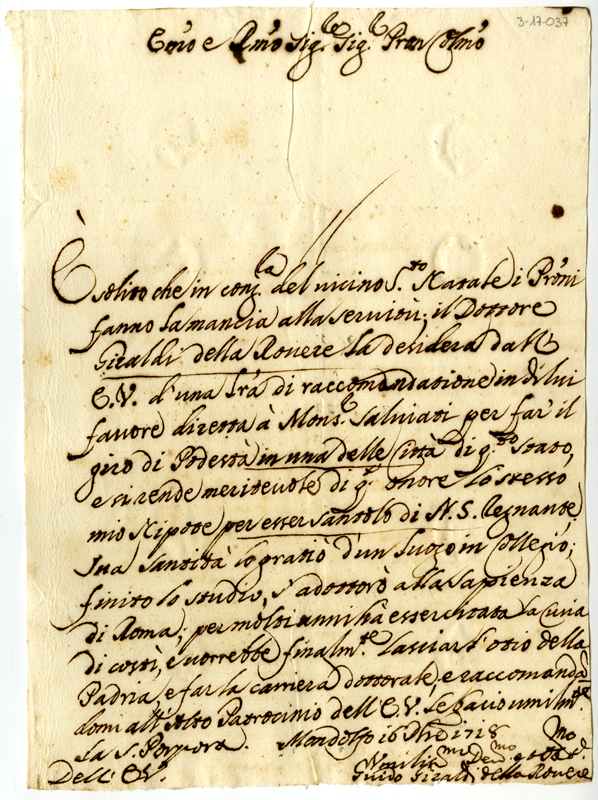 3-17-037
Em̃o e R̃mo Sig.re Sig.r Pron Colm̃o
È solito che in cong.ra del vicino S.to Natale i Pr̃oni
fanno la mancia alla servitù; il Dottore
Giraldi della Rovere la desidera da
E.V. d'una lr̃a di raccomandatione in di lui
favore diretta à Mons.r Salviati per far il
giro di Podestà in una delle Città di q.to stato,
e si rende meritevole di q.o onore lo stesso
mio Nipote per esser santolo di N.S. Regnante
Sua Santità lo gratiò d'un luogo in Collegio;
finito lo studio, s'adottorò alla Sapienza
di Roma; per molti anni hà essercitata la Curia
di costì, e vorrebbe finalm.te lasciar l'otio della
Padria, e far la carriera dottorale; e raccomandã
domi all'Alto Patrocinio dell'E.V. le bacio umilm.te
la S. Porpora. Mondolfo 16 Xbre 1718
Dell'E.V. Umilis.mo Dev.mo
Guido Giraldi della Rovere